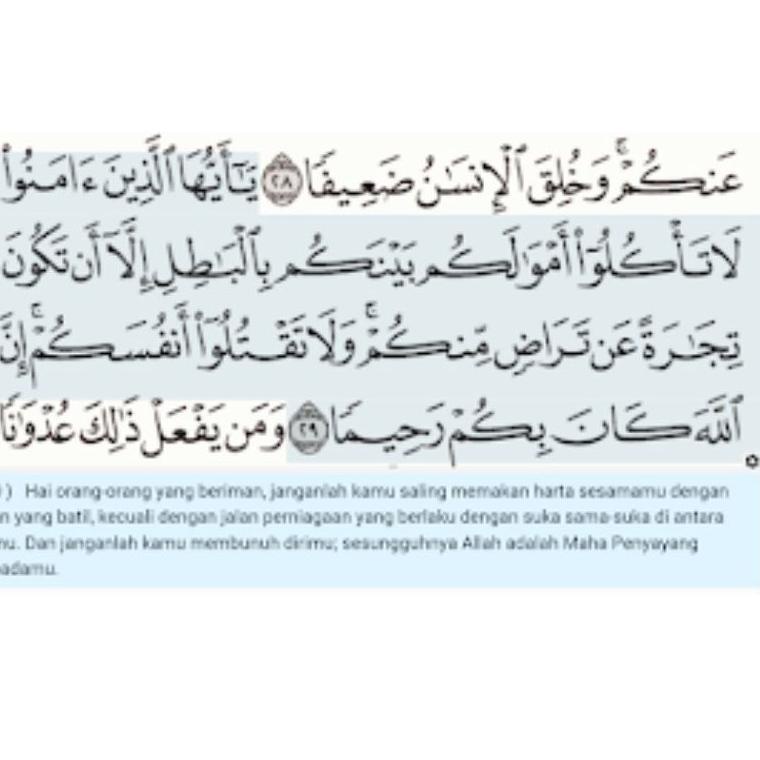 عَنكُمۡۚ وَخُلِقَ ٱلۡإِنسَٰنُ ضَعِيفٗا ٢٨ يَٰٓأَيُّهَا ٱلَّذِينَ ءَامَنُواْ
لَا تَأۡكُلُوٓاْ أَمۡوَٰلَكُم بَيۡنَكُم بِٱلۡبَٰطِلِ إِلَّآ أَن تَكُونَ
تِجَٰرَةً عَن تَرَاضٖ مِّنكُمۡۚ وَلَا تَقۡتُلُوٓاْ أَنفُسَكُمۡۚ إِنَّ
ٱللَّهَ كَانَ بِكُمۡ رَحِيمٗا ٢٩ وَمَن يَفۡعَلۡ ذَٰلِكَ عُدۡوَٰنٗا
) Hai orang-orang yang beriman, janganlah kamu saling memakan harta sesamamu dengan
n yang batil, kecuali dengan jalan perniagaan yang berlaku dengan suka sama-suka di antara
mu. Dan janganlah kamu membunuh dirimu; sesungguhnya Allah adalah Maha Penyayang
adamu.